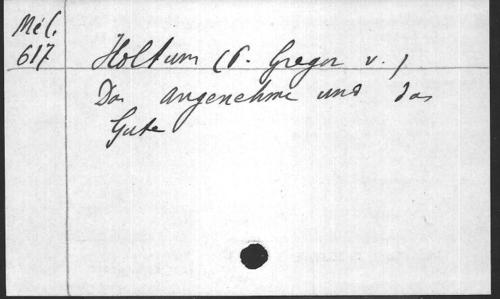 Mél.
617
Holtum (P. Gregor v.)
Das angenehme und das
Gute